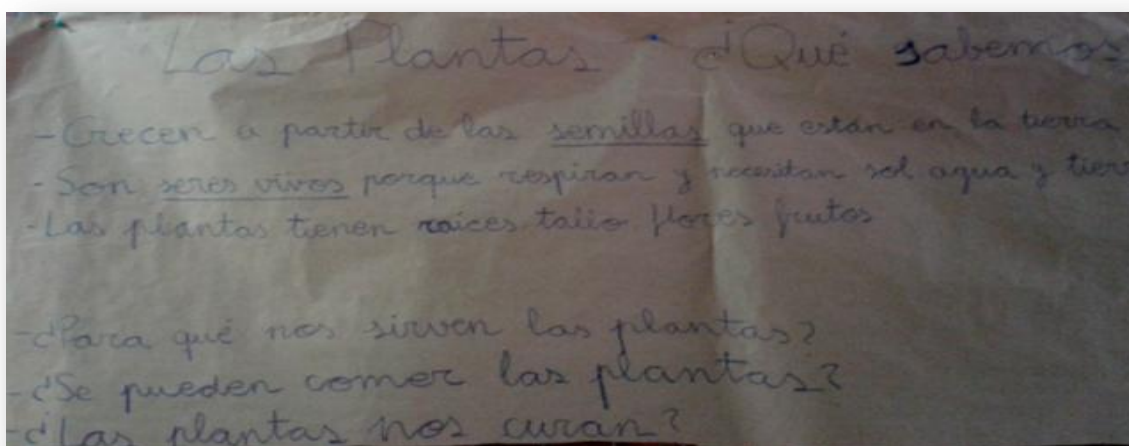 Las Plantas ¿Qué sabemos
- Crecen a partir de las semillas que están en la tierra
- Son seres vivos porque respiran y necesitan sol agua y tier
- Las plantas tienen raíces tallo flores frutos
- ¿Para qué nos sirven las plantas?
- ¿Se pueden comer las plantas?
- ¿Las plantas nos curan?